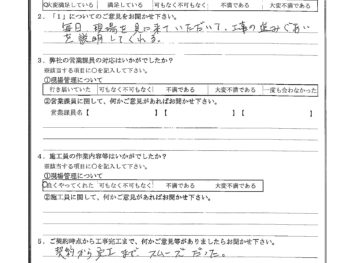 大変満足している 満足している 可もなく不可もなく 不満である 大変不満である
2．「1」についてのご意見をお聞かせ下さい。
毎日 現場を見に来ていただいて、工事の進みぐあい
を説明してくれる。
3．弊社の営業課員の対応はいかがでしたか？
※該当する項目に○を記入して下さい。
①現場管理について
行き届いていた 可もなく不可もなく 不満である 大変不満である 一度も会わなかった
②営業課員に関して、何かご意見があればお聞かせ下さい。
営業課員名【 】
4．施工員の作業内容等はいかがでしたか？
※該当する項目に○を記入して下さい。
①現場管理について
良くやってくれた 可もなく不可もなく 不満である 大変不満である
②施工員に関して、何かご意見があればお聞かせ下さい。
5．ご契約時点から工事完工まで、何かご意見等がありましたらお聞かせ下さい。
契約から完工まで スムーズだった。